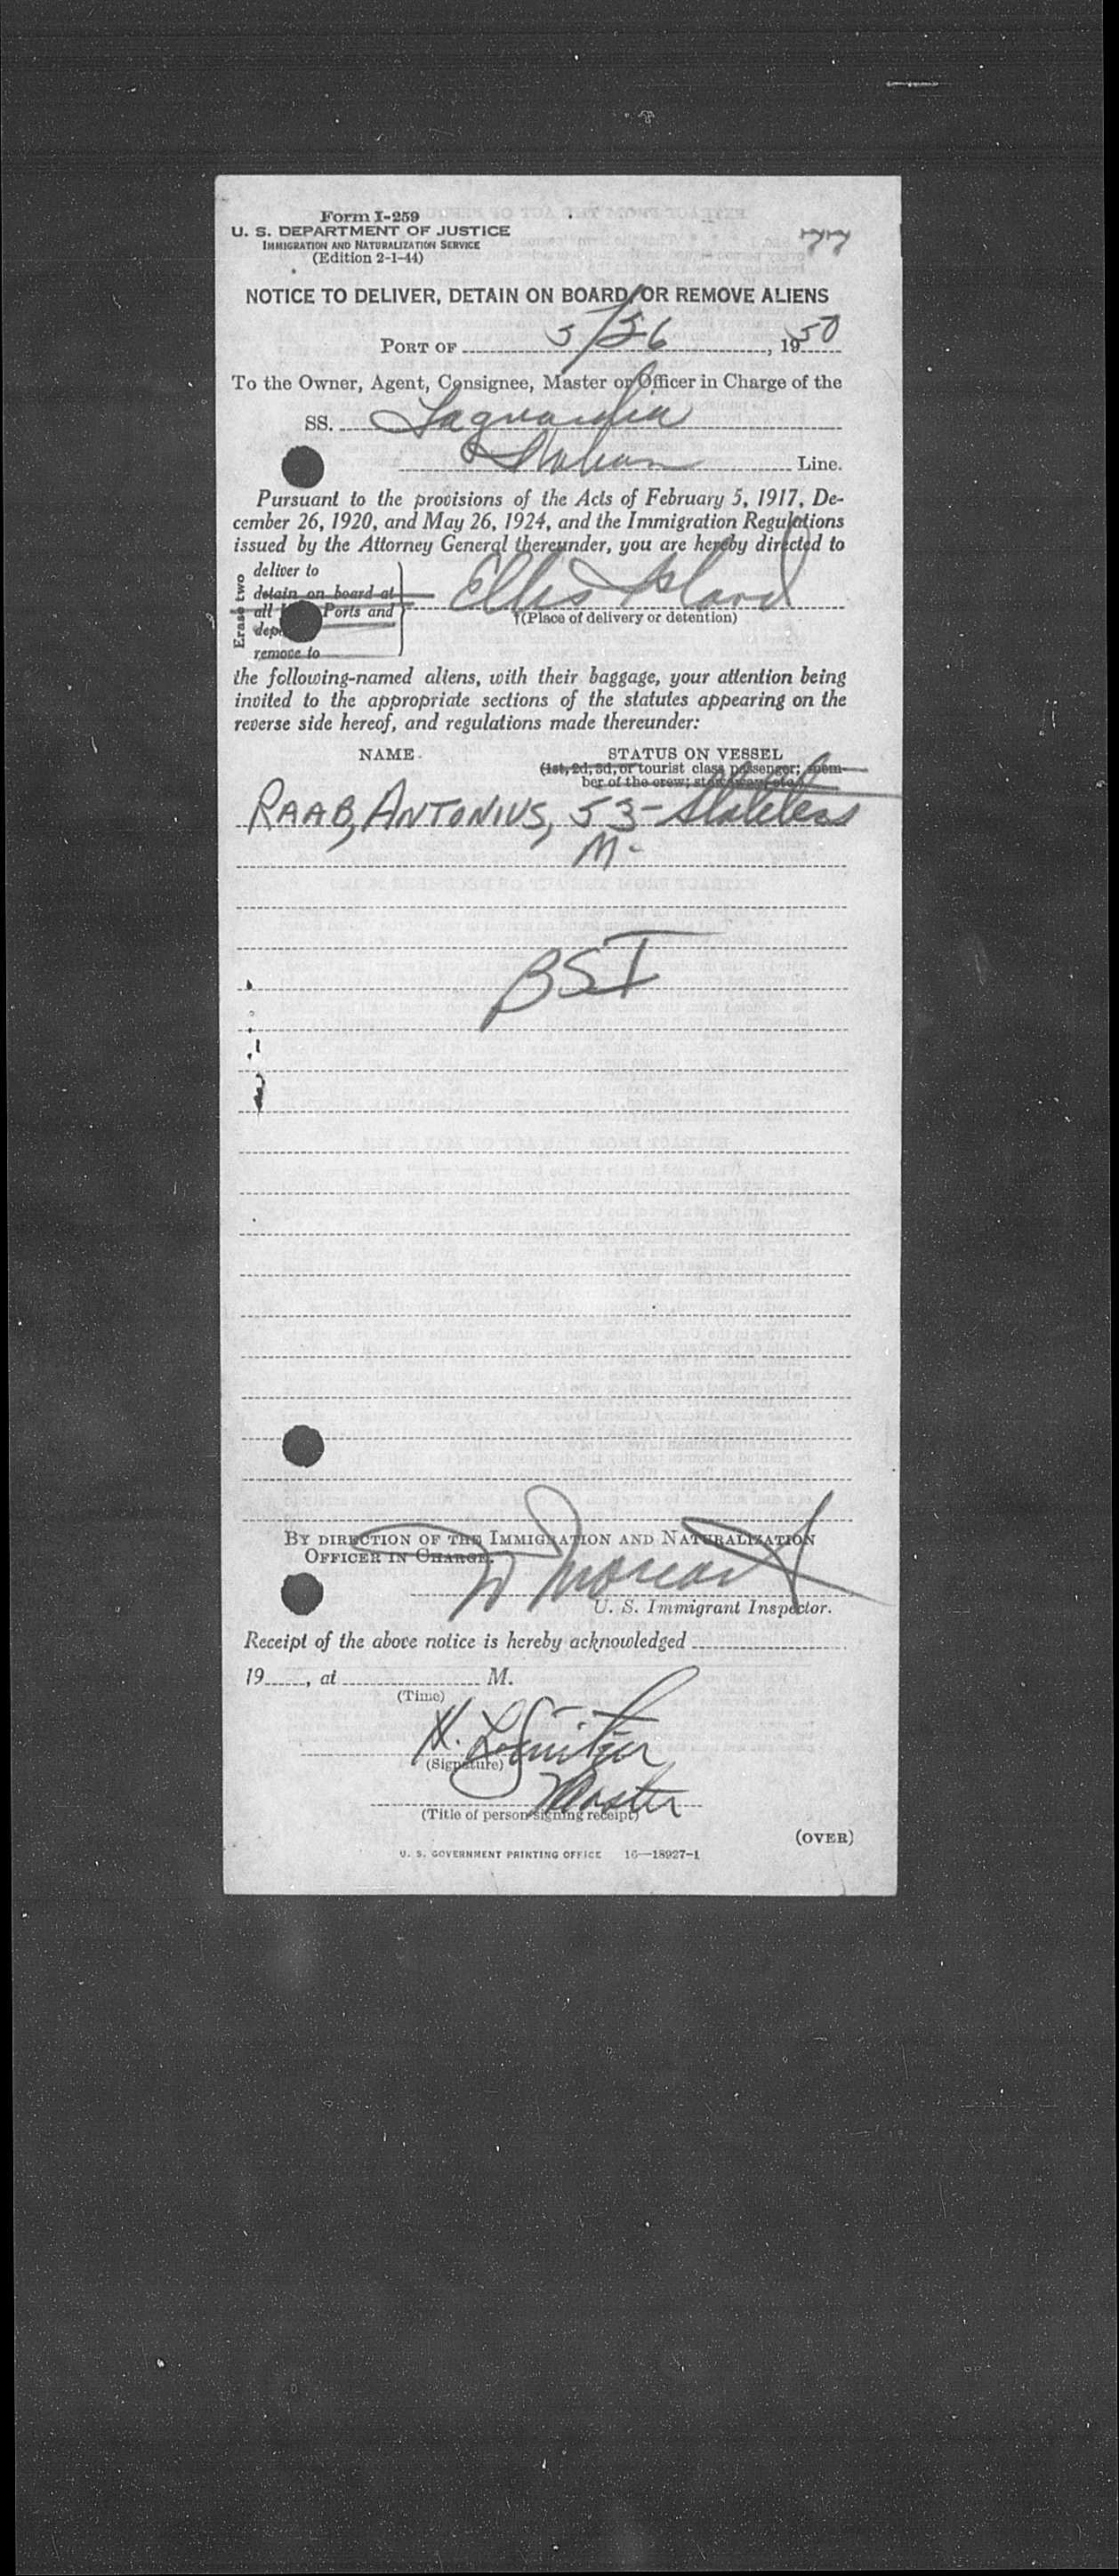 Form I-259
U. S. DEPARTMENT OF JUSTICE
IMMIGRATION AND NATURALIZATION SERVICE
(Edition 2-1-44)
NOTICE TO DELIVER, DETAIN ON BOARD, OR REMOVE ALIENS
PORT OF 5/26, 1950
To the Owner, Agent, Consignee, Master or Officer in Charge of the
SS. Laguardia
Line.
Pursuant to the provisions of the Acts of February 5, 1917, De-
cember 26, 1920, and May 26, 1924, and the Immigration Regulations
issued by the Attorney General thereunder, you are hereby directed to
Erase two
deliver to
detain on board at
all Ports and
remove to
Ellis Island
(Place of delivery or detention)
the following-named aliens, with their baggage, your attention being
invited to the appropriate sections of the statutes appearing on the
reverse side hereof, and regulations made thereunder:
NAME STATUS ON VESSEL
(1st, 2d, 3d, or tourist class passenger; mem-
ber of the crew; stowaway, etc.)
RAAB, ANTONIUS, 53- Stateless
M-
BSI
BY DIRECTION OF THE IMMIGRATION AND NATURALIZATION
OFFICER IN CHARGE.
U. S. Immigrant Inspector.
Receipt of the above notice is hereby acknowledged
19, at M.
(Time)
(Signature)
Master
(Title of person signing receipt)
(OVER)
U. S. GOVERNMENT PRINTING OFFICE 16—18927-1